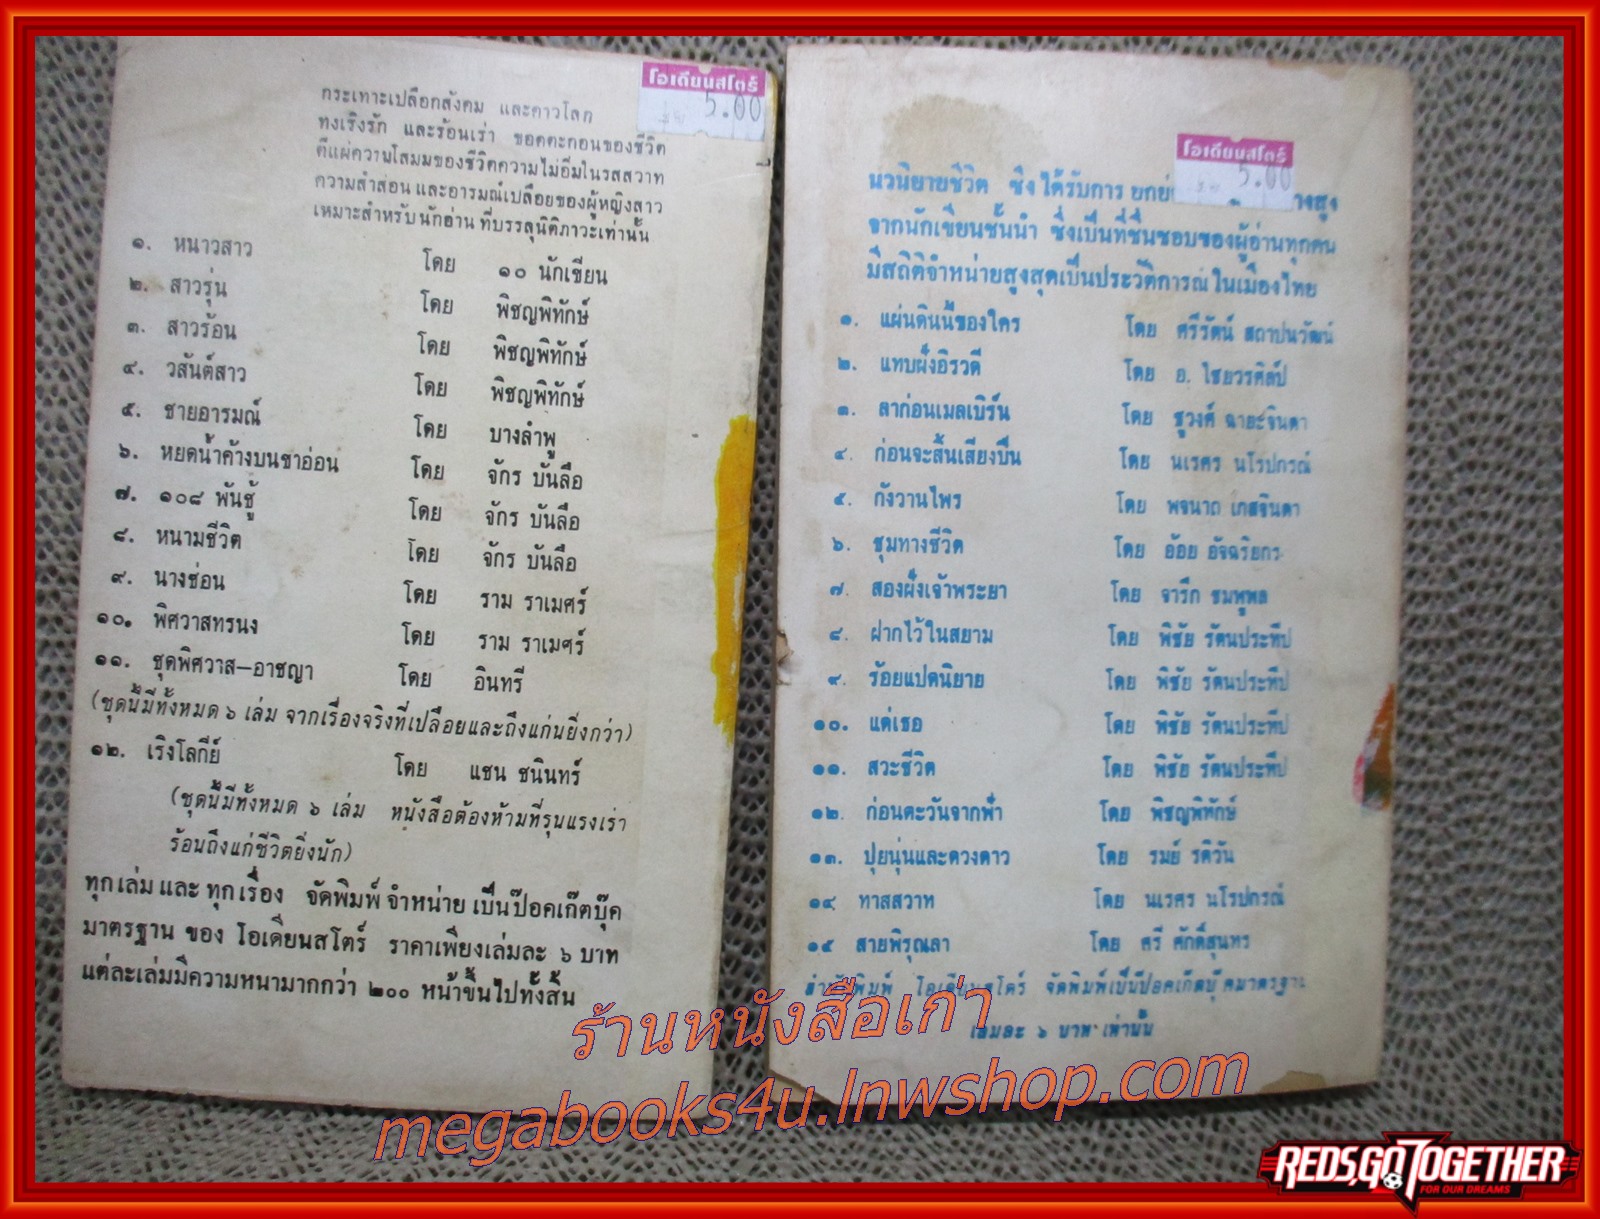 โอเดียนสโตร์
5.00
กระเทาะเปลือกสังคม และคาวโลก
ทงเริงรัก และร้อนเร่า ขอดตะกอนของชีวิต
ตีแผ่ความโสมมของชีวิตความไม่อิ่มในรสสวาท
ความสำส่อน และอารมณ์เปลือยของผู้หญิงสาว
เหมาะสำหรับนักอ่าน ที่บรรลุนิติภาวะเท่านั้น
๑. หนาวสาว โดย ๑๐ นักเขียน
๒. สาวรุ่น โดย พิชญพิทักษ์
๓. สาวร้อน โดย พิชญพิทักษ์
๔. วสันต์สาว โดย พิชญพิทักษ์
๕. ชายอารมณ์ โดย บางลำพู
๖. หยดน้ำค้างบนขาอ่อน โดย จักร บันลือ
๗. ๑๐๘ พันชู้ โดย จักร บันลือ
๘. หนามชีวิต โดย จักร บันลือ
๙. นางซ่อน โดย ราม ราเมศร์
๑๐. พิศวาสทรนง โดย ราม ราเมศร์
๑๑. ชุดพิศวาส–อาชญา โดย อินทรี
(ชุดนี้มีทั้งหมด ๖ เล่ม จากเรื่องจริงที่เปลือยและถึงแก่นยิ่งกว่า)
๑๒. เริงโลกีย์ โดย แชน ชนินทร์
(ชุดนี้มีทั้งหมด ๖ เล่ม หนังสือต้องห้ามที่รุนแรงเร่า
ร้อนถึงแก่ชีวิตยิ่งนัก)
ทุกเล่ม และ ทุกเรื่อง จัดพิมพ์ จำหน่าย เป็นป๊อคเก๊ตบุ๊ค
มาตรฐาน ของ โอเดียนสโตร์ ราคาเพียงเล่มละ ๖ บาท
แต่ละเล่มมีความหนามากกว่า ๒๐๐ หน้าขึ้นไปทั้งสิ้น
โอเดียนสโตร์
5.00
นวนิยายชีวิต ซึ่งได้รับการ ยกย่ างสูง
จากนักเขียนชั้นนำ ซึ่งเป็นที่ชื่นชอบของผู้อ่านทุกคน
มีสถิติจำหน่ายสูงสุดเป็นประวัติการณ์ในเมืองไทย
๑. แผ่นดินนี้ของใคร โดย ศรีรัตน์ สถาปนวัฒน์
๒. แทบฝั่งอิรวดี โดย อ. ไชยวรศิลป์
๓. ลาก่อนเมลเบิร์น โดย ชูวงศ์ ฉายะจินดา
๔. ก่อนจะสิ้นเสียงปืน โดย นเรศร นโรปกรณ์
๕. กังวานไพร โดย พจนาถ เกสจินดา
๖. ชุมทางชีวิต โดย อ้อย อัจฉริยกร
๗. สองฝั่งเจ้าพระยา โดย จารึก ชมพูพล
๘. ฝากไว้ในสยาม โดย พิชัย รัตนประทีป
๙. ร้อยแปดนิยาย โดย พิชัย รัตนประทีป
๑๐. แด่เธอ โดย พิชัย รัตนประทีป
๑๑. สวะชีวิต โดย พิชัย รัตนประทีป
๑๒. ก่อนตะวันจากฟ้า โดย พิชญพิทักษ์
๑๓. ปุยนุ่นและดวงดาว โดย รมย์ รติวัน
๑๔. ทาสสวาท โดย นเรศร นโรปกรณ์
๑๕. สายพิรุณลา โดย ศรี ศักดิ์สุนทร
สำนักพิมพ์ โอเดียนสโตร์ จัดพิมพ์เป็นป๊อคเก็ตบุ๊คมาตรฐาน
เล่มละ ๖ บาท เท่านั้น
ร้านหนังสือเก่า
megabooks4u.lnwshop.com
REDS,GO TOGETHER
FOR OUR DREAMS